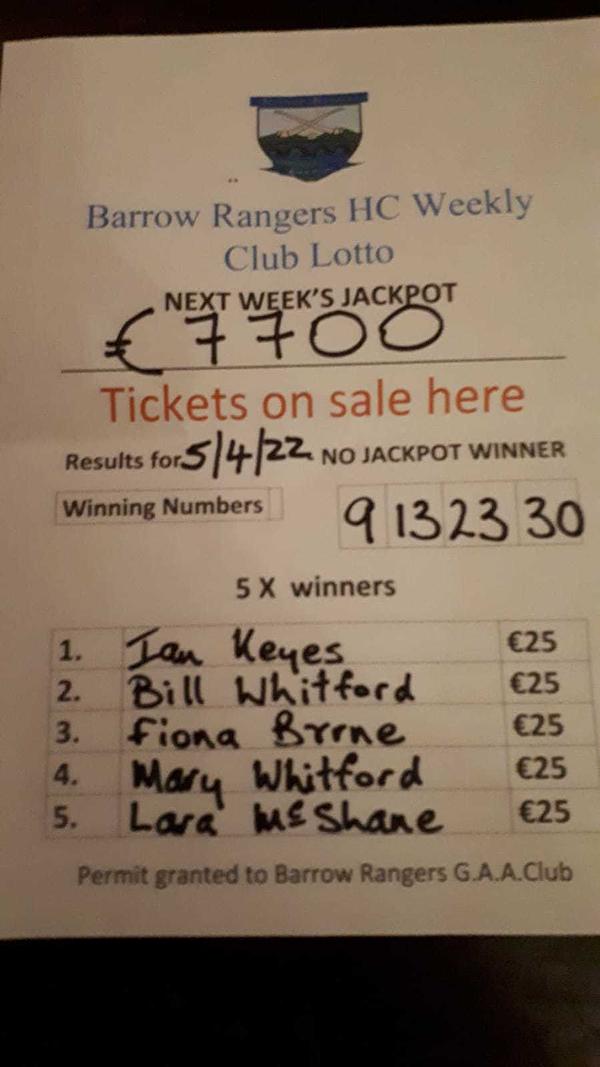 Barrow Rangers HC Weekly
Club Lotto
NEXT WEEK'S JACKPOT
€7700
Tickets on sale here
Results for 5/4/22 NO JACKPOT WINNER
Winning Numbers 9 13 23 30
5 X winners
1. Ian Keyes €25
2. Bill Whitford €25
3. Fiona Byrne €25
4. Mary Whitford €25
5. Lara McShane €25
Permit granted to Barrow Rangers G.A.A.Club